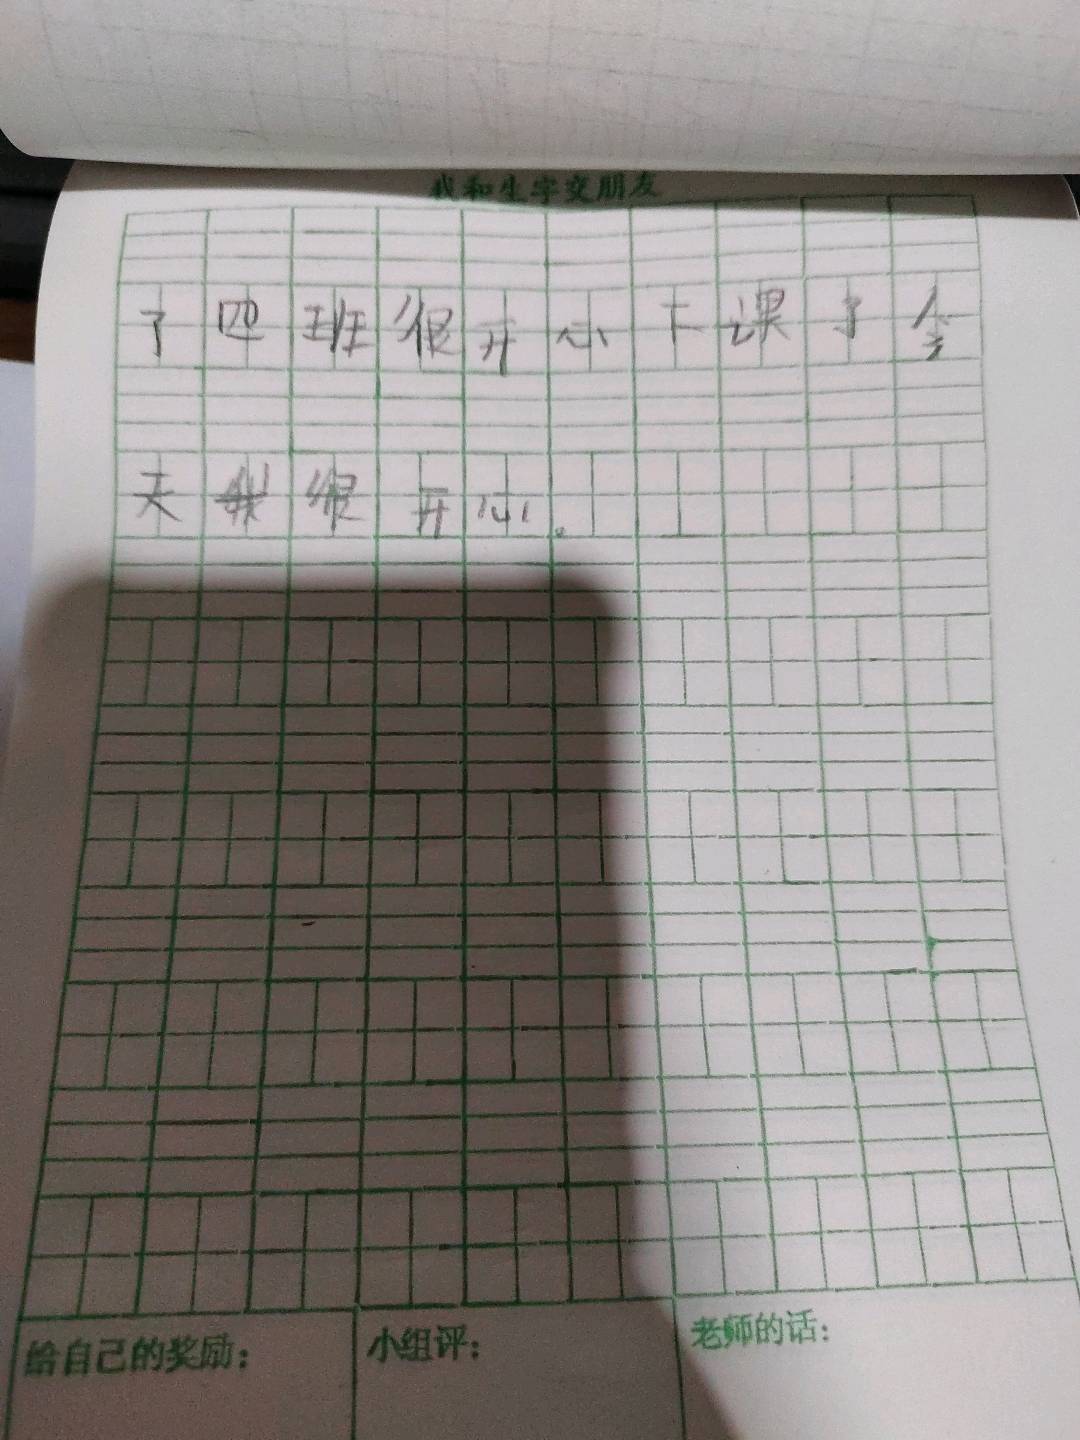 我和生字交朋友
了四班很开心下课了今
天我很开心。
给自己的奖励：
小组评：
老师的话：